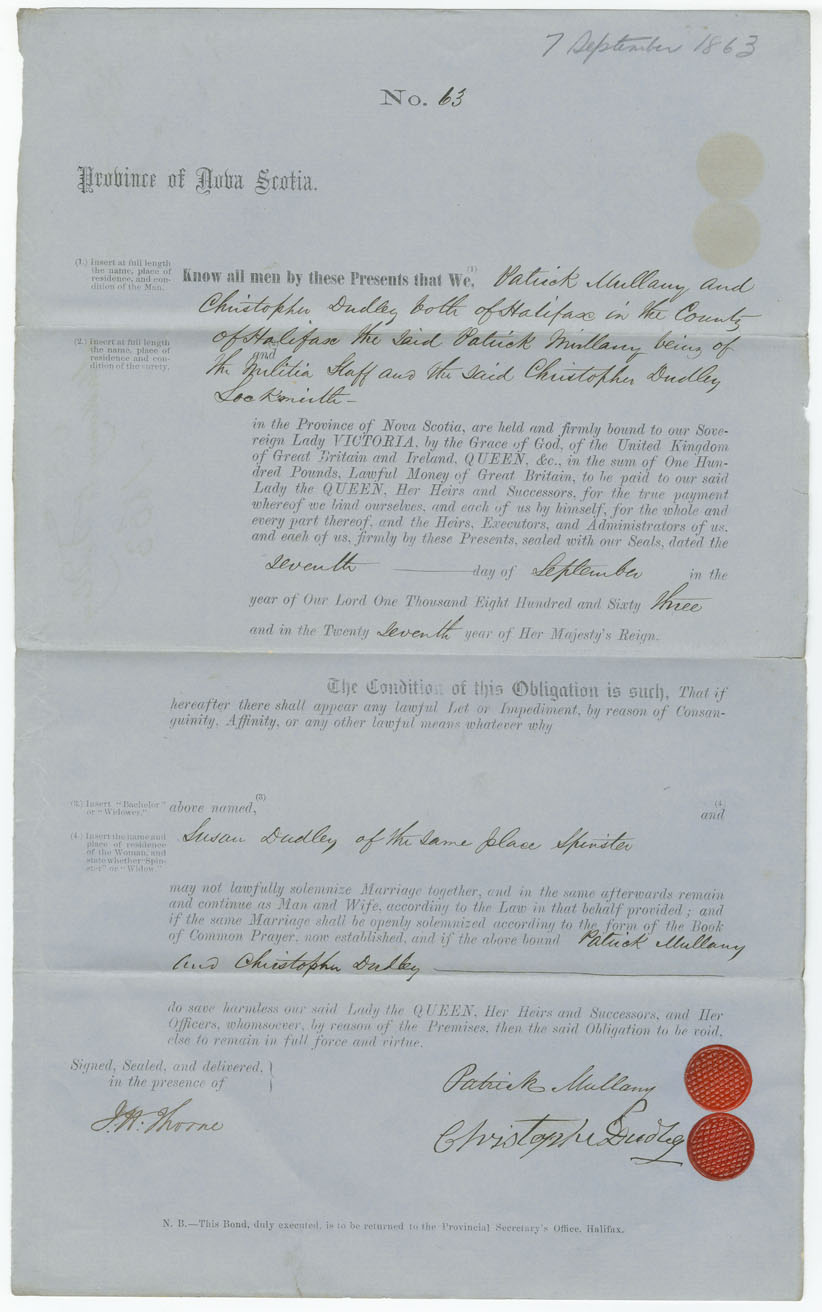 7 September 1863
No. 63
Province of Nova Scotia.
(1.) Insert at full length
the name, place of
residence, and con-
dition of the Man.
Know all men by these Presents that We, (1) Patrick Mullany and
Christopher Dudley both of Halifax in the County
(2.) Insert at full length
the name, place of
residence and con-
dition of the surety.
of Halifax the said Patrick Mullany being of
the Militia Staff and the said Christopher Dudley
Locksmith –
in the Province of Nova Scotia, are held and firmly bound to our Sove-
reign Lady VICTORIA, by the Grace of God, of the United Kingdom
of Great Britain and Ireland, QUEEN, &c., in the sum of One Hun-
dred Pounds, Lawful Money of Great Britain, to be paid to our said
Lady the QUEEN, Her Heirs and Successors, for the true payment
whereof we bind ourselves, and each of us by himself, for the whole and
every part thereof, and the Heirs, Executors, and Administrators of us,
and each of us, firmly by these Presents, sealed with our Seals, dated the
seventh day of September in the
year of Our Lord One Thousand Eight Hundred and Sixty three
and in the Twenty seventh year of Her Majesty's Reign.
The Condition of this Obligation is such, That if
hereafter there shall appear any lawful Let or Impediment, by reason of Consan-
guinity, Affinity, or any other lawful means whatever why
(3.) Insert "Bachelor"
or "Widower."
above named, (3) (4)
and
(4.) Insert the name and
place of residence
of the Woman, and
state whether "Spin-
ster" or "Widow."
Susan Dudley of the same place Spinster
may not lawfully solemnize Marriage together, and in the same afterwards remain
and continue as Man and Wife, according to the Law in that behalf provided; and
if the same Marriage shall be openly solemnized according to the form of the Book
of Common Prayer, now established, and if the above bound Patrick Mullany
and Christopher Dudley
do save harmless our said Lady the QUEEN, Her Heirs and Successors, and Her
Officers, whomsoever, by reason of the Premises, then the said Obligation to be void,
else to remain in full force and virtue.
Signed, Sealed, and delivered,
in the presence of
Patrick Mullany
J. H. Thorne
Christopher Dudley
N. B.—This Bond, duly executed, is to be returned to the Provincial Secretary's Office, Halifax.